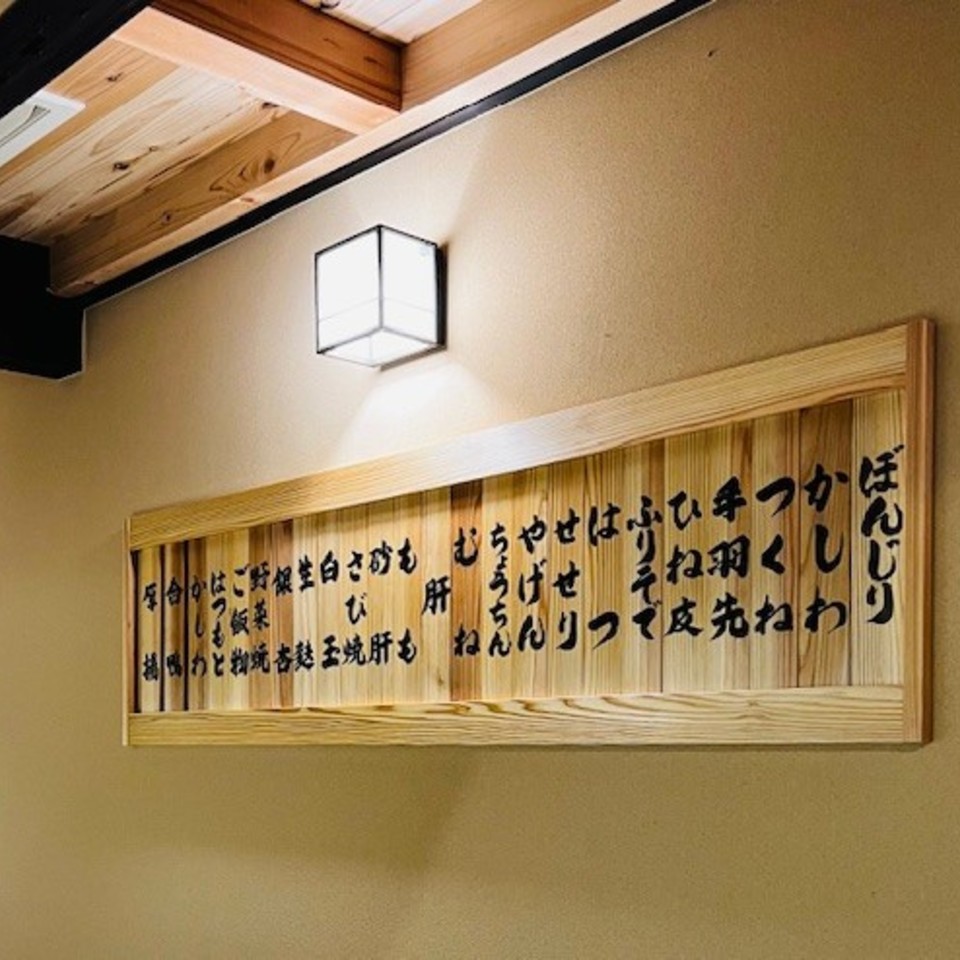 ぼんじり
かしわ
つくね
手羽先
ひね皮
ふりそで
はつ
せせり
やげん
ちょうちん
むね
肝
もも
砂肝
さび焼
白玉
生麩
銀杏
野菜焼
ご飯物
はつもと
かしわ
合鴨
厚揚